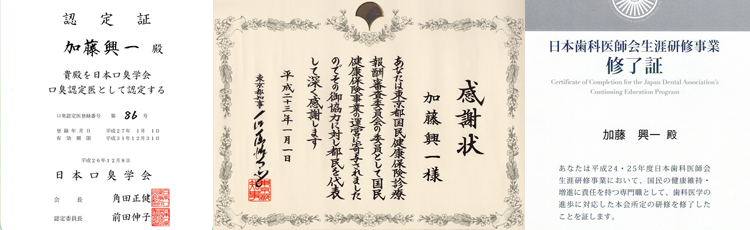 認定証
加藤興一 殿
貴殿を日本口臭学会
口臭認定医として認定する
口臭認定医登録番号 第 86 号
登録年月日 平成27年 1月 1日
有効期間 平成31年12月31日
平成26年12月8日
日本口臭学会
会長 角田正健
認定委員長 前田伸子
感謝状
加藤興一様
あなたは東京都国民健康保険診療
報酬審査委員会の委員として国民
健康保険事業の運営に寄与されました
のでその御協力に対し都民を代表
して深く感謝します
平成二十三年一月一日
東京都知事
日本歯科医師会生涯研修事業
修了証
Certificate of Completion for the Japan Dental Association's
Continuing Education Program
加藤 興一 殿
あなたは平成24・25年度日本歯科医師会
生涯研修事業において、国民の健康維持・
増進に責任を持つ専門職として、歯科医学の
進歩に対応した本会所定の研修を修了した
ことを証します。